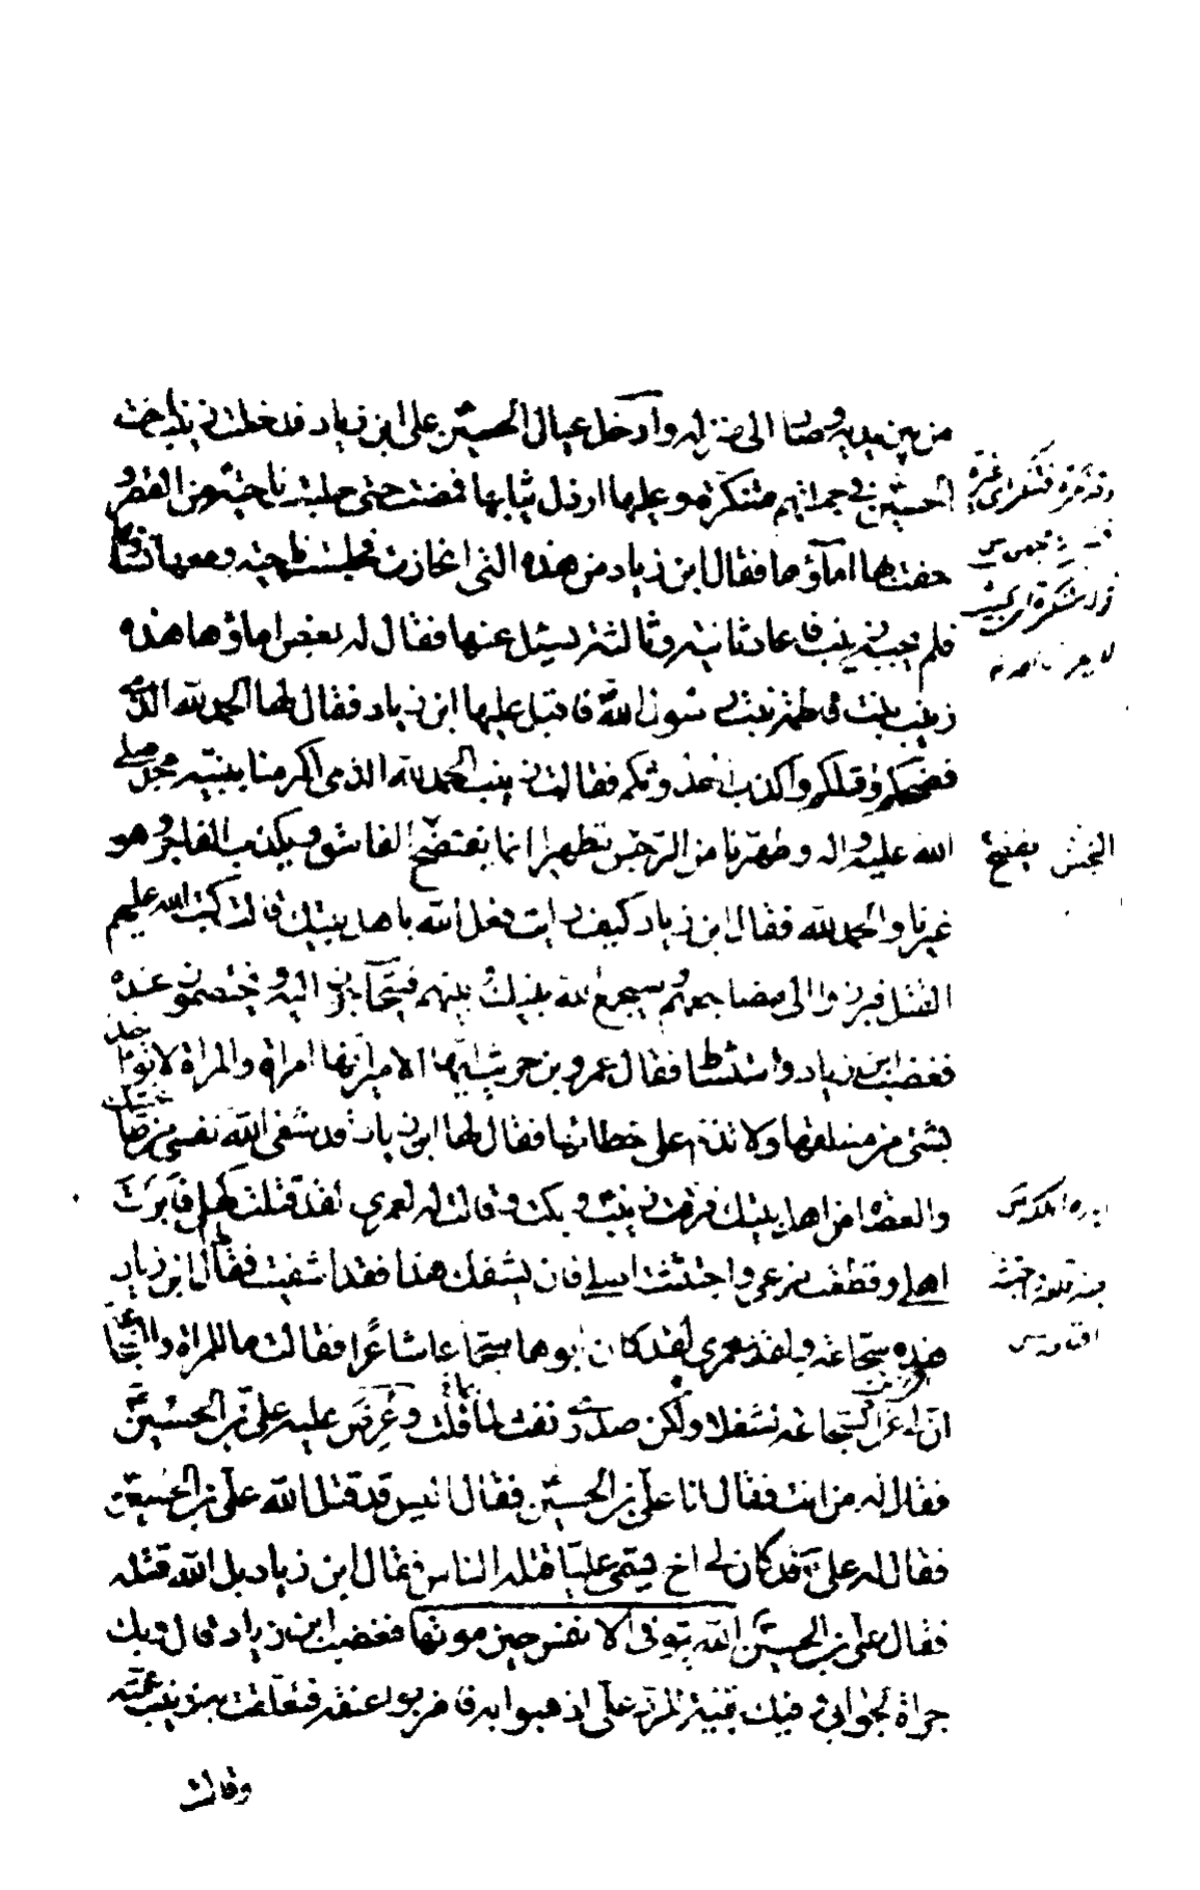 من بين يديه وصار الى منزله وادخل عيال الحسين على ابن زياد فدخلت زينب اخت
الحسين في جملتهم متنكرة وعليها ارذل ثيابها فمضت حتى جلست ناحية من القصر و
حفت بها اماؤها فقال ابن زياد من هذه التي انحازت فجلست ناحية ومعها نساؤها
فلم تجبه زينب فاعاد ثانية وثالثة يسئل عنها فقال له بعض اماؤها هذه
زينب بنت فاطمة بنت رسول الله فاقبل عليها ابن زياد فقال لها الحمد لله الذي
فضحكم وقتلكم واكذب احدوثتكم فقالت زينب الحمد لله الذي اكرمنا بنبيه محمد صلى
الله عليه واله وطهرنا من الرجس تطهيرا انما يفتضح الفاسق ويكذب الفاجر وهو
غيرنا والحمد لله فقال ابن زياد كيف رايت فعل الله باهل بيتك قالت كتب الله عليهم
القتل فبرزوا الى مضاجعهم وسيجمع الله بينك وبينهم فتحاجون اليه وتختصمون عنده
فغضب ابن زياد واستشاط فقال عمرو بن حريث ايها الامير انها امراة والمراة لا تؤخذ
بشئ من منطقها ولا تذم على خطائها فقال لها ابن زياد قد شفى الله نفسي من طاغيتك
والعصاة من اهل بيتك فرقت زينب وبكت وقالت له لعمري لقد قتلت كهلي وابرت
اهلي وقطعت فرعي واجتثثت اصلي فان يشفك هذا فقد اشفيت فقال ابن زياد
هذه سجاعة ولقد لعمري لقد كان ابوها سجاعا شاعرا فقالت ما للمراة والسجاعة
ان لي عن السجاعة لشغلا ولكن صدري نفث لما قلت وعرض عليه علي بن الحسين
فقال له من انت فقال انا علي بن الحسين فقال اليس قد قتل الله علي بن الحسين
فقال له علي قد كان لي اخ يسمى عليا قتله الناس فقال ابن زياد بل الله قتله
فقال علي بن الحسين الله يتوفى الانفس حين موتها فغضب ابن زياد قال وبك
جراة لجوابي وفيك بقية للرد علي اذهبوا به فاضربوا عنقه فتعلقت به زينب عمته
وقالت